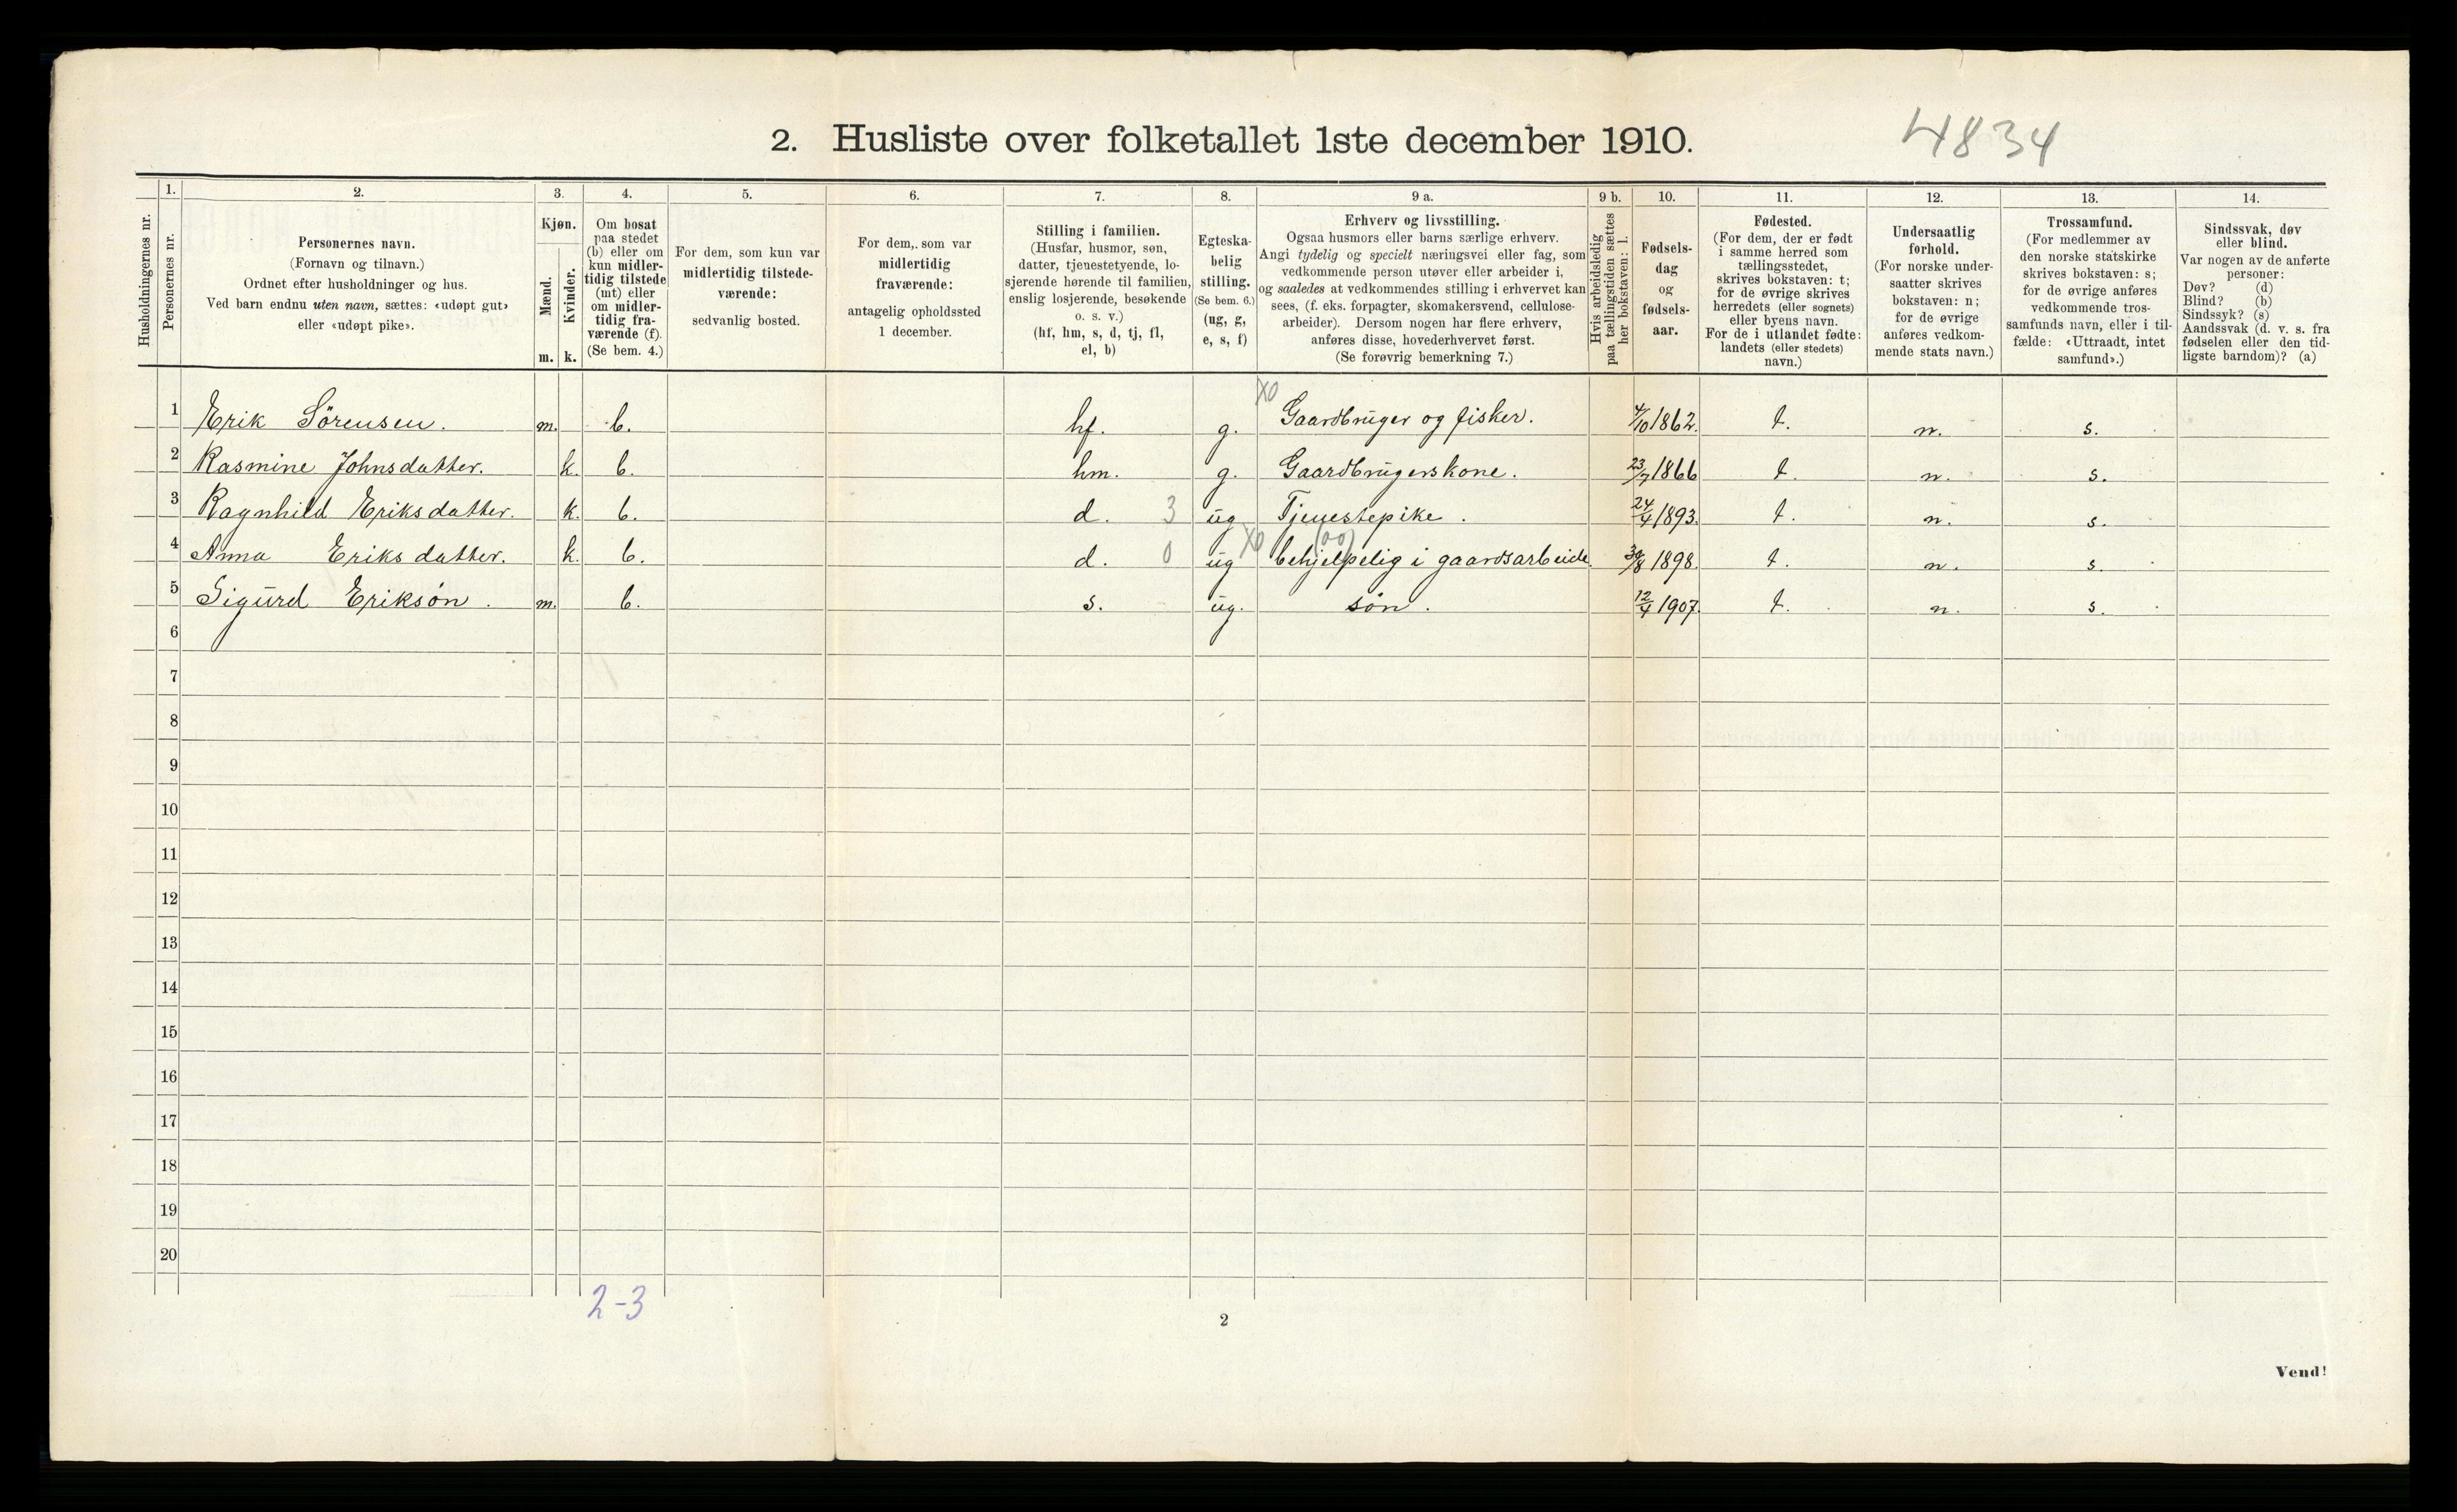 2. Husliste over folketallet 1ste december 1910.
4834
Husholdningernes nr.
1.
Personernes nr.
2.
Personernes navn.
(Fornavn og tilnavn.)
Ordnet efter husholdninger og hus.
Ved barn endnu uten navn, sættes: «udøpt gut»
eller «udøpt pike».
3.
Kjøn.
Mænd.
Kvinder.
m. k.
4.
Om bosat
paa stedet
(b) eller om
kun midler-
tidig tilstede
(mt) eller
om midler-
tidig fra-
værende (f).
(Se bem. 4.)
5.
For dem, som kun var
midlertidig tilstede-
værende:
sedvanlig bosted.
6.
For dem, som var
midlertidig
fraværende:
antagelig opholdssted
1 december.
7.
Stilling i familien.
(Husfar, husmor, søn,
datter, tjenestetyende, lo-
sjerende hørende til familien,
enslig losjerende, besøkende
o. s. v.)
(hf, hm, s, d, tj, fl,
el, b)
8.
Egteska-
belig
stilling.
(Se bem. 6.)
(ug, g,
e, s, f)
9 a.
Erhverv og livsstilling.
Ogsaa husmors eller barns særlige erhverv.
Angi tydelig og specielt næringsvei eller fag, som
vedkommende person utøver eller arbeider i,
og saaledes at vedkommendes stilling i erhvervet kan
sees, (f. eks. forpagter, skomakersvend, cellulose-
arbeider). Dersom nogen har flere erhverv,
anføres disse, hovederhvervet først.
(Se forøvrig bemerkning 7.)
9 b.
Hvis arbeidsledig
paa tællingstiden sættes
her bokstaven: l.
10.
Fødsels-
dag
og
fødsels-
aar.
11.
Fødested.
(For dem, der er født
i samme herred som
tællingsstedet,
skrives bokstaven: t;
for de øvrige skrives
herredets (eller sognets)
eller byens navn.
For de i utlandet fødte:
landets (eller stedets)
navn.)
12.
Undersaatlig
forhold.
(For norske under-
saatter skrives
bokstaven: n;
for de øvrige
anføres vedkom-
mende stats navn.)
13.
Trossamfund.
(For medlemmer av
den norske statskirke
skrives bokstaven: s;
for de øvrige anføres
vedkommende tros-
samfunds navn, eller i til-
fælde: «Uttraadt, intet
samfund».)
14.
Sindssvak, døv
eller blind.
Var nogen av de anførte
personer:
Døv? (d)
Blind? (b)
Sindssyk? (s)
Aandssvak (d. v. s. fra
fødselen eller den tid-
ligste barndom)? (a)
1 Erik Sörensen. m. b. hf. g. X0 Gaardbruger og fisker. 4/10 1862. t. n. s.
2 Rasmine Johnsdatter. k. b. hm. g. Gaardbrugerskone. 23/7 1866 t. n. s.
3 Ragnhild Eriksdatter. k. b. d. 3 ug Tjenestepike. 24/4 1893. t. n. s.
4 Anna Eriksdatter. k. b. d. 0 ug X0 (00) behjelpelig i gaardsarbeide. 30/8 1898. t. n. s.
5 Sigurd Eriksøn. m. b. s. ug. søn. 12/4 1907. t. n. s.
6
7
8
9
10
11
12
13
14
15
16
17
18
19
20
2-3
2
Vend!